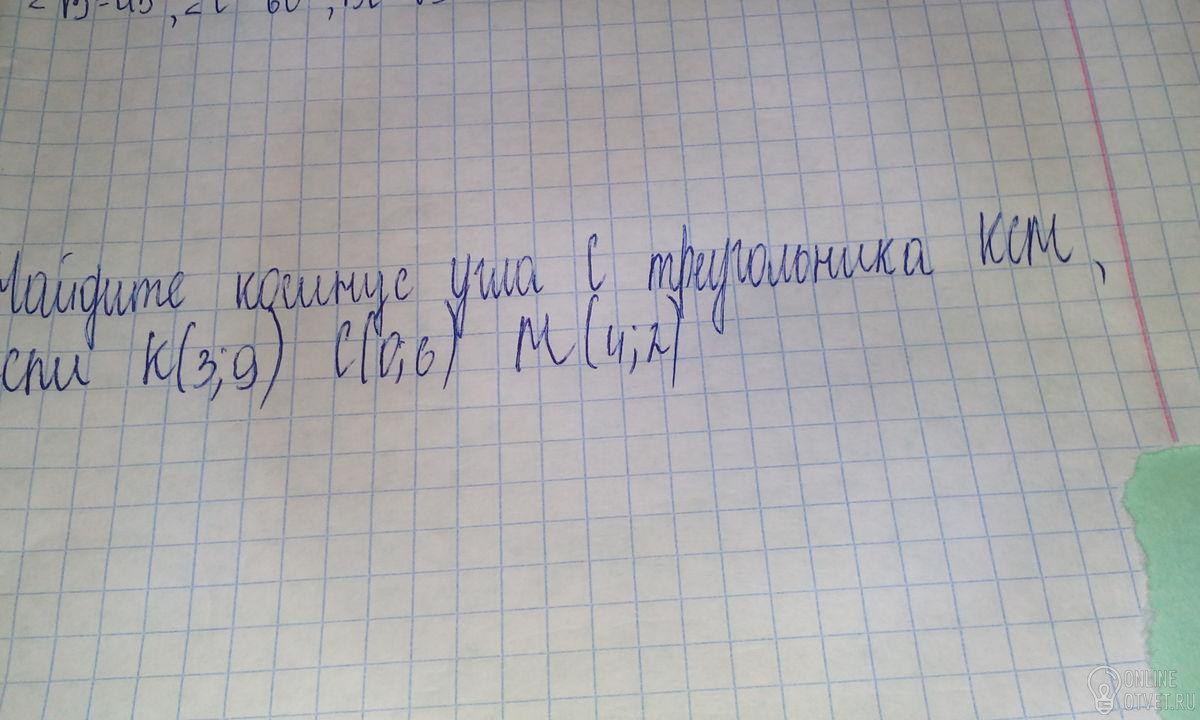 Найдите косинус угла C треугольника KCM,
если K(3;9) C(0;6) M(4;2)
ONLINE
OTVET.RU